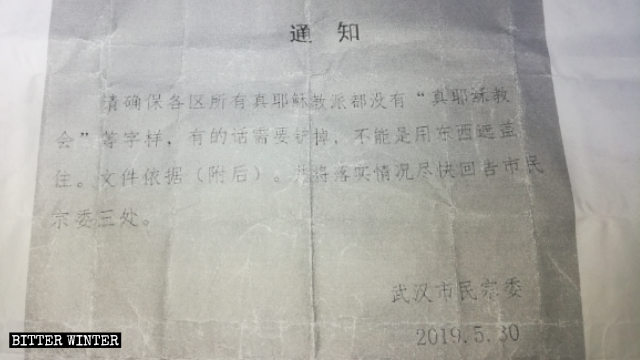 通知
请确保各区所有真耶稣教派都没有“真耶稣教
会”等字样，有的话需要铲掉，不能是用东西遮盖
住。文件依据（附后）。并将落实情况尽快回告市民
宗委三处。
武汉市民宗委
2019.5.30
BITTER WINTER